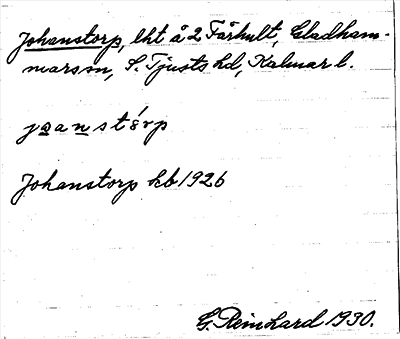 Johanstorp, lht å 2 Fårhult, Gladham-
marssn, S. Tjusts hd, Kalmar l.
jo̲an̲stórp
Johanstorp kb 1926
G. Reinhard 1930.